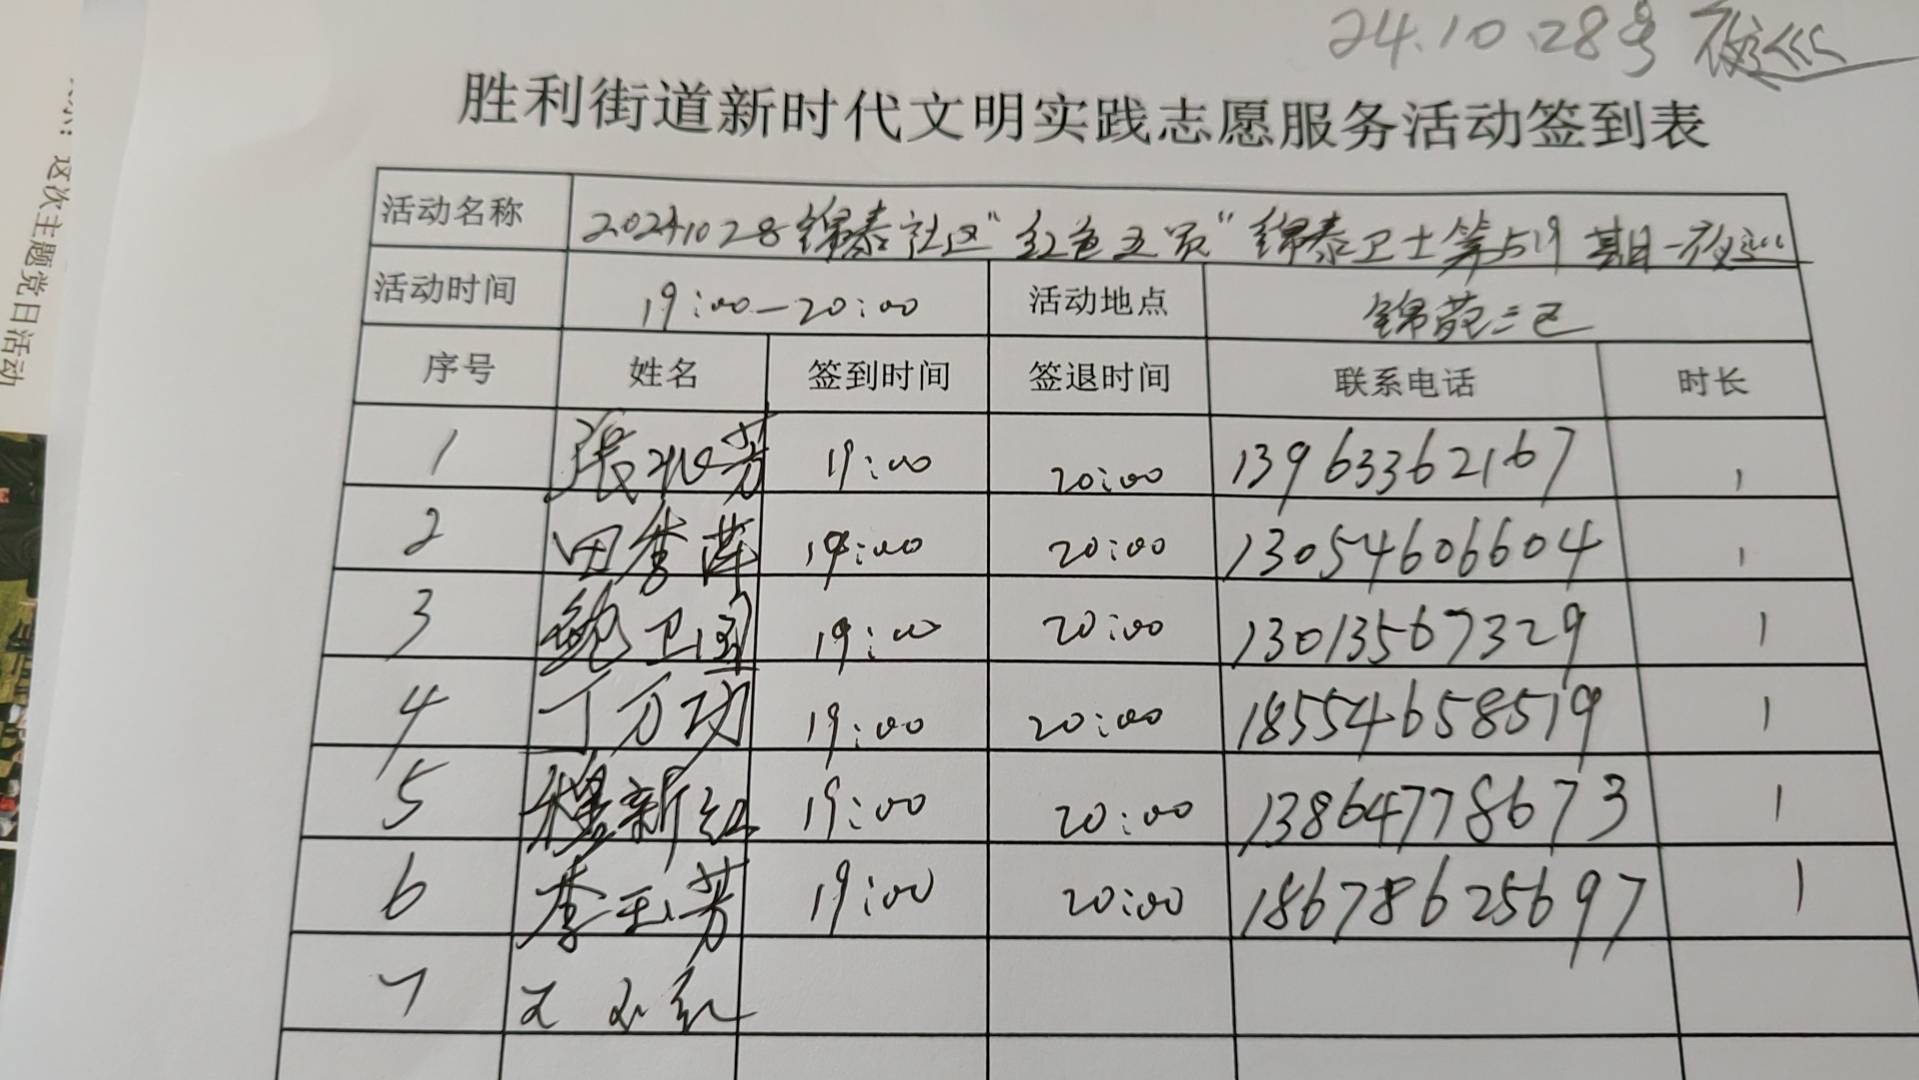 24.10.28号 夜巡
胜利街道新时代文明实践志愿服务活动签到表
活动名称 20241028锦泰社区“红色文员”锦泰卫士第519期-夜巡
活动时间 19:00-20:00 活动地点 锦苑二区
序号 姓名 签到时间 签退时间 联系电话 时长
1 張 芳 19:00 20:00 13963362167 1
2 田秀萍 19:00 20:00 13054606604 1
3 鲍卫国 19:00 20:00 13013567329 1
4 丁万功 19:00 20:00 18554658519 1
5 穆新红 19:00 20:00 13864778673 1
6 李玉芳 19:00 20:00 18678625697 1
7 红
这次主题党日活动